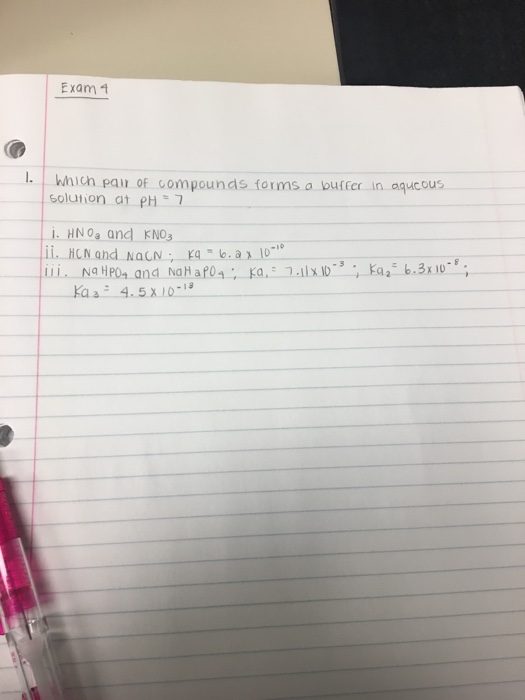 Exam 4
1. Which pair of compounds forms a buffer in aqueous
solution at pH = 7
i. HNO₃ and KNO₃
ii. HCN and NaCN; Ka = 6.2 x 10⁻¹⁰
iii. NaHPO₄ and NaH₂PO₄; Ka₁ = 7.11 x 10⁻³; Ka₂ = 6.3 x 10⁻⁸;
Ka₃ = 4.5 x 10⁻¹³